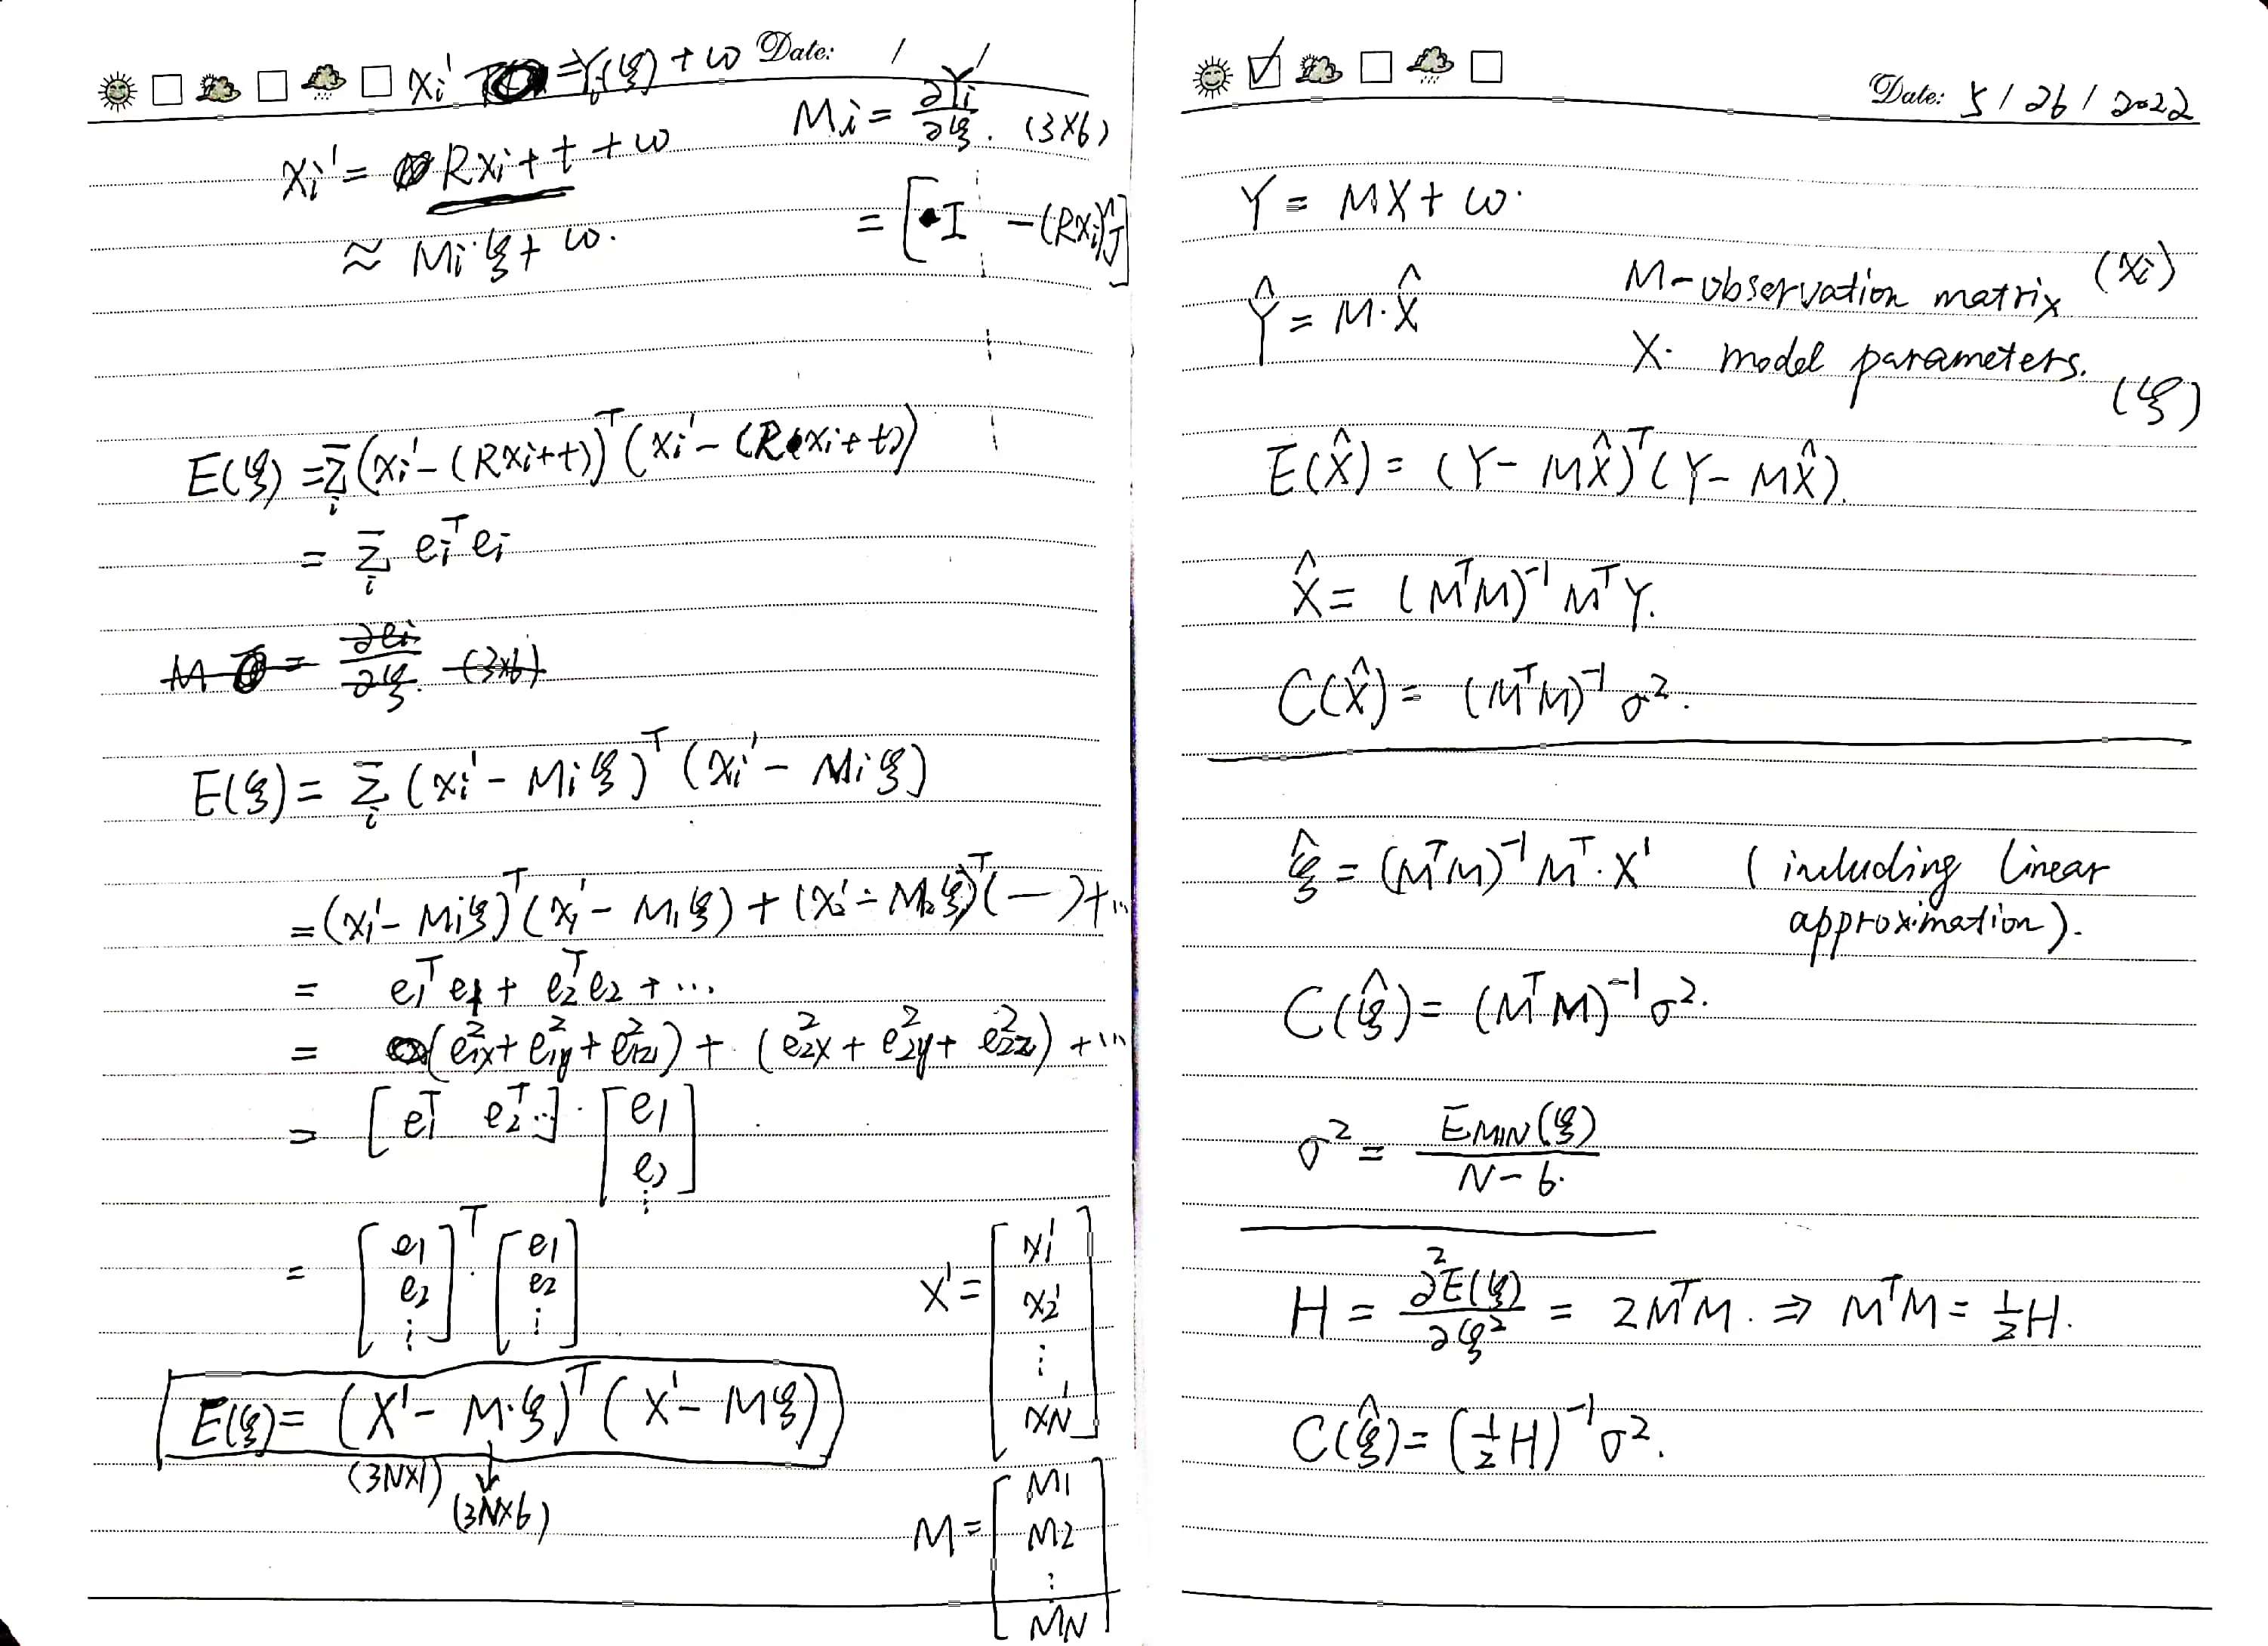 xi' = Yi(ξ) + ω Date: / /
Mi = ∂Yi/∂ξ. (3×6)
xi' = Rxi + t + ω
= [I -(Rxi)^J]
≈ Mi·ξ + ω.
E(ξ) = Σi (xi' - (Rxi+t))^T (xi' - (Rxi+t))
= Σi ei^T ei
M = ∂ei/∂ξ. (3×6)
E(ξ) = Σi (xi' - Miξ)^T (xi' - Miξ)
= (x1' - M1ξ)^T (x1' - M1ξ) + (x2' - M2ξ)^T (—) + ...
= e1^T e1 + e2^T e2 + ...
= (e1x² + e1y² + e1z²) + (e2x² + e2y² + e2z²) + ...
= [e1^T e2^T ...] · [e1 e2 ⋮]
= [e1 e2 ⋮]^T · [e1 e2 ⋮]
X' = [x1' x2' ⋮ xN']
E(ξ) = (X' - M·ξ)^T (X' - Mξ)
(3N×1) (3N×6)
M = [M1 M2 ⋮ MN]
Date: 5 / 26 / 2022
Y = MX + ω.
M - observation matrix (xi)
Ŷ = M·X̂
X· model parameters. (ξ)
E(X̂) = (Y - MX̂)^T (Y - MX̂).
X̂ = (M^T M)^-1 M^T Y.
C(X̂) = (M^T M)^-1 σ².
ξ̂ = (M^T M)^-1 M^T · X' (including linear
approximation).
C(ξ̂) = (M^T M)^-1 σ².
σ² = EMIN(ξ) / N-6.
H = ∂²E(ξ)/∂ξ² = 2M^T M. ⇒ M^T M = ½H.
C(ξ̂) = (½H)^-1 σ².